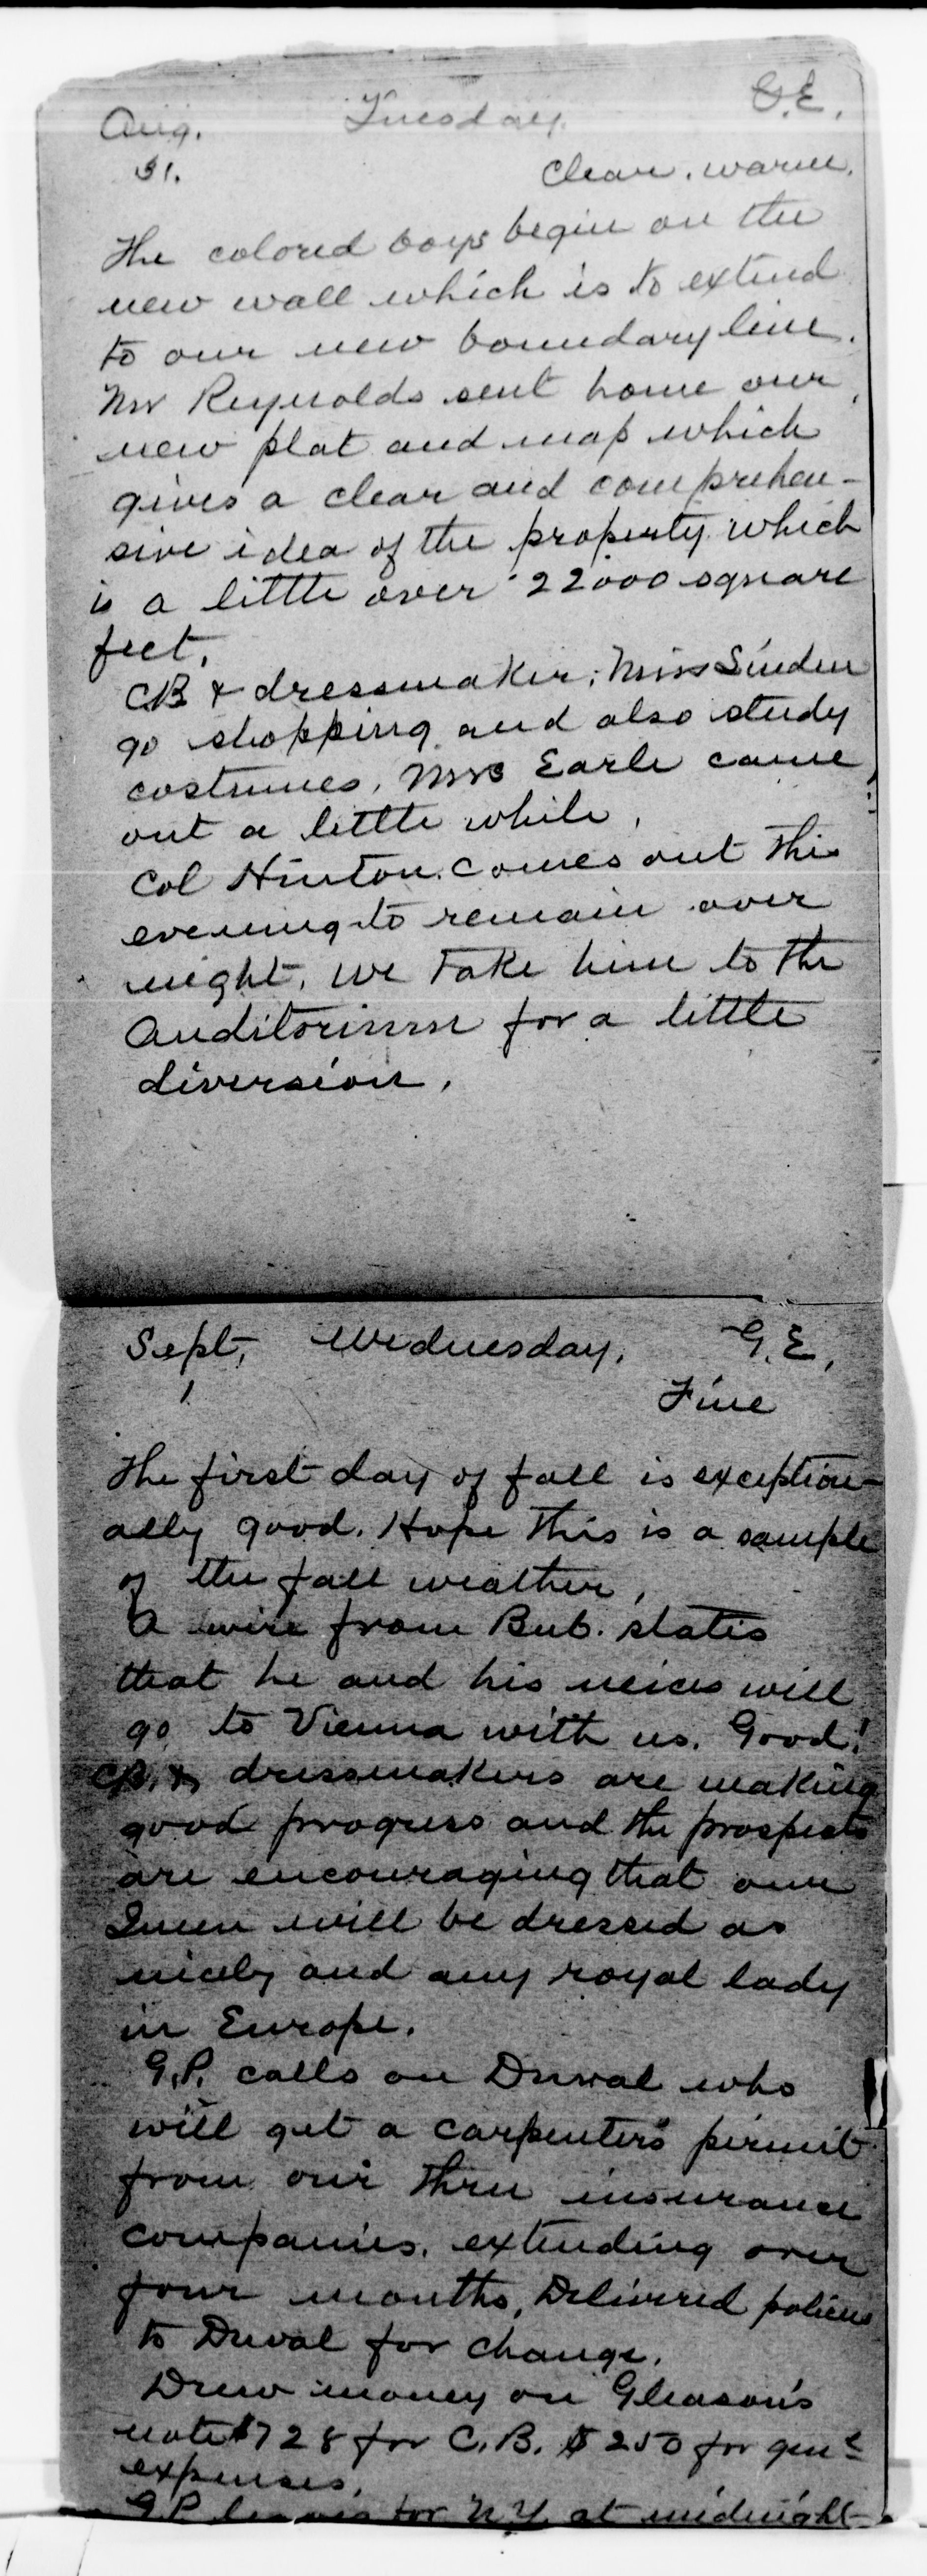 Aug. Tuesday. G.E.
31. Clear. warm.
The colored boys begin on the
new wall which is to extend
to our new boundary line.
Mr Reynolds sent home our
new plat and map which
gives a clear and comprehen-
sive idea of the property which
is a little over 22000 square
feet.
CB & dressmaker; Miss Sinden
go shopping and also study
costumes, Mrs Earle came
out a little while.
Col Hinton comes out this
evening to remain over
night. We take him to the
Auditorium for a little
diversion.
Sept, Wednesday. G.E.
1. Fine
The first day of fall is exception-
ally good. Hope this is a sample
of the fall weather.
A wire from Bub. states
that he and his neices will
go to Vienna with us. Good!
CB. & dressmakers are making
good progress and the prospects
are encouraging that our
Queen will be dressed as
nicely and any royal lady
in Europe.
G.P. calls on Duval who
will get a carpenter's permit
from our three insurance
companies. extending over
four months, Delivered policies
to Duval for change.
Drew money on Gleason's
note $728 for C.B. $250 for gen'l
expenses.
G.P. leaves for N.Y. at midnight